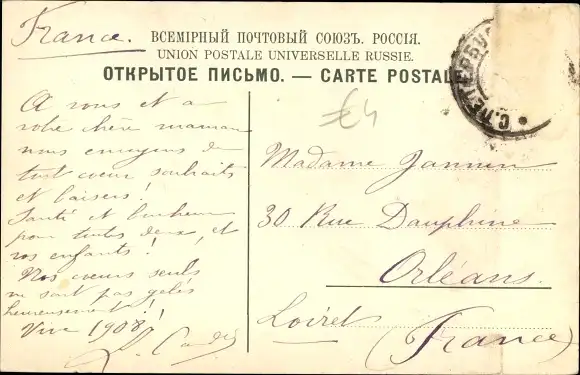 France.
ВСЕМІРНЫЙ ПОЧТОВЫЙ СОЮЗЪ. РОССІЯ.
UNION POSTALE UNIVERSELLE RUSSIE.
ОТКРЫТОЕ ПИСЬМО. — CARTE POSTALE
С.ПЕТЕРБУ
€4
A vous et a
votre chère maman
nous envoyons de
tout coeur souhaits
et baisers!
Santé et bonheur
pour toutes deux, et
vos enfants!
Nos coeurs seuls
ne sont pas gelés
heureusement!
Vive 1908!
Madame Jannin
30 Rue Dauphine
Orléans.
Loiret
(France)